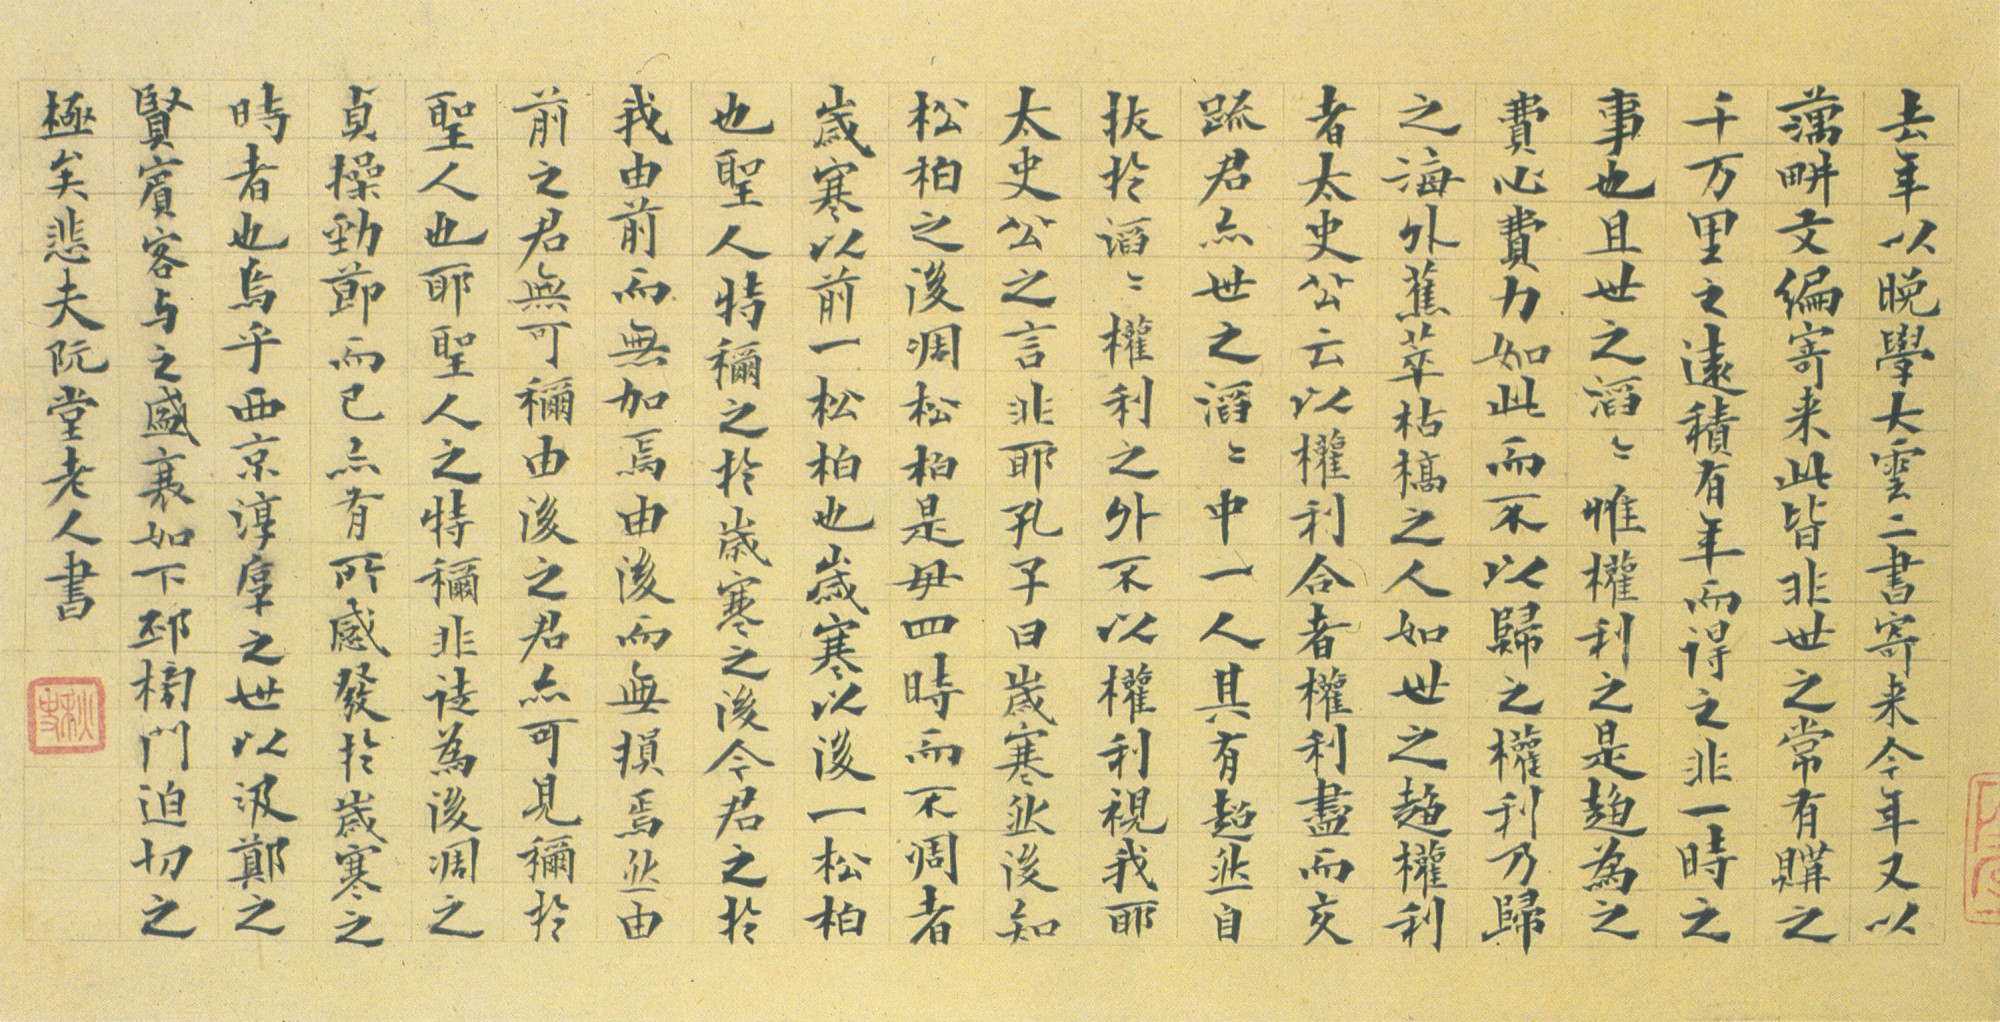 去年以晚學大雲二書寄来今年又以
藕畊文編寄来此皆非世之常有購之
千万里之遠積有年而得之非一時之
事也且世之滔〻惟權利之是趨為之
費心費力如此而不以歸之權利乃歸
之海外蕉萃枯槁之人如世之趨權利
者太史公云以權利合者權利盡而交
踈君亦世之滔〻中一人其有超然自
拔扵滔〻權利之外不以權利視我耶
太史公之言非耶孔子曰歲寒然後知
松柏之後凋松柏是毋四時而不凋者
歲寒以前一松柏也歲寒以後一松柏
也聖人特稱之扵歲寒之後今君之扵
我由前而無加焉由後而無損焉然由
前之君無可稱由後之君亦可見稱扵
聖人也耶聖人之特稱非徒為後凋之
貞操勁節而已亦有所感發扵歲寒之
時者也烏乎西京淳厚之世以汲鄭之
賢賓客与之盛衰如下邳榜門迫切之
極矣悲夫阮堂老人書
秋史